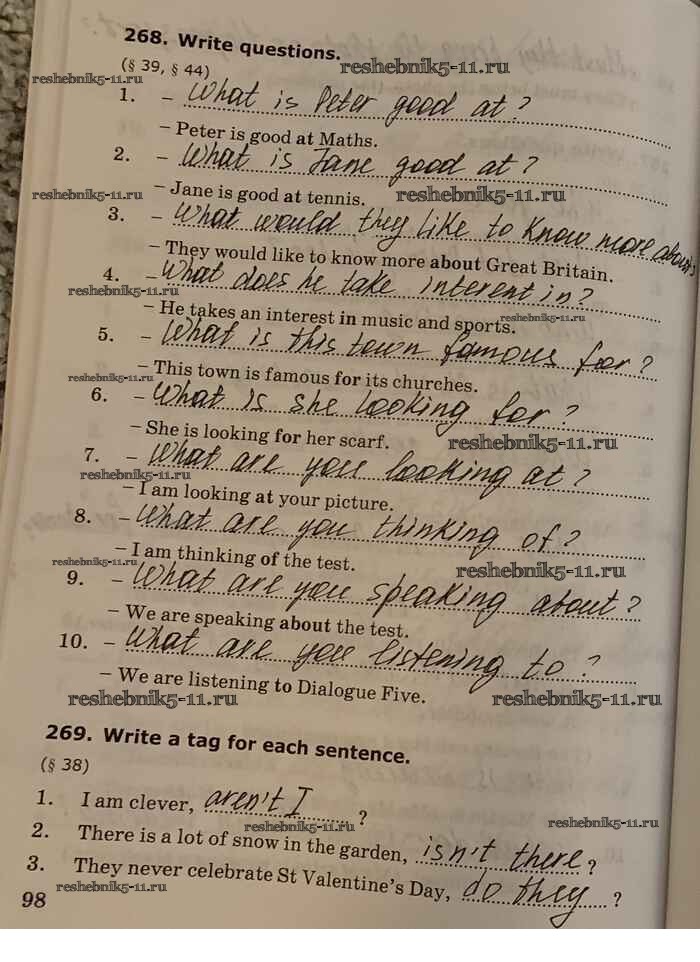 268. Write questions.
reshebnik5-11.ru
(§ 39, § 44)
reshebnik5-11.ru
1. – What is Peter good at?
– Peter is good at Maths.
2. – What is Jane good at?
– Jane is good at tennis.
reshebnik5-11.ru
reshebnik5-11.ru
3. – What would they like to know more about?
– They would like to know more about Great Britain.
4. – What does he take interest in?
reshebnik5-11.ru
– He takes an interest in music and sports.
reshebnik5-11.ru
5. – What is this town famous for?
– This town is famous for its churches.
reshebnik5-11.ru
6. – What is she looking for?
– She is looking for her scarf.
reshebnik5-11.ru
7. – What are you looking at?
reshebnik5-11.ru
– I am looking at your picture.
8. – What are you thinking of?
– I am thinking of the test.
reshebnik5-11.ru
reshebnik5-11.ru
9. – What are you speaking about?
– We are speaking about the test.
10. – What are you listening to?
– We are listening to Dialogue Five.
reshebnik5-11.ru
reshebnik5-11.ru
269. Write a tag for each sentence.
(§ 38)
1. I am clever, aren't I ?
reshebnik5-11.ru
reshebnik5-11.ru
2. There is a lot of snow in the garden, isn't there ?
3. They never celebrate St Valentine's Day, do they ?
reshebnik5-11.ru
98